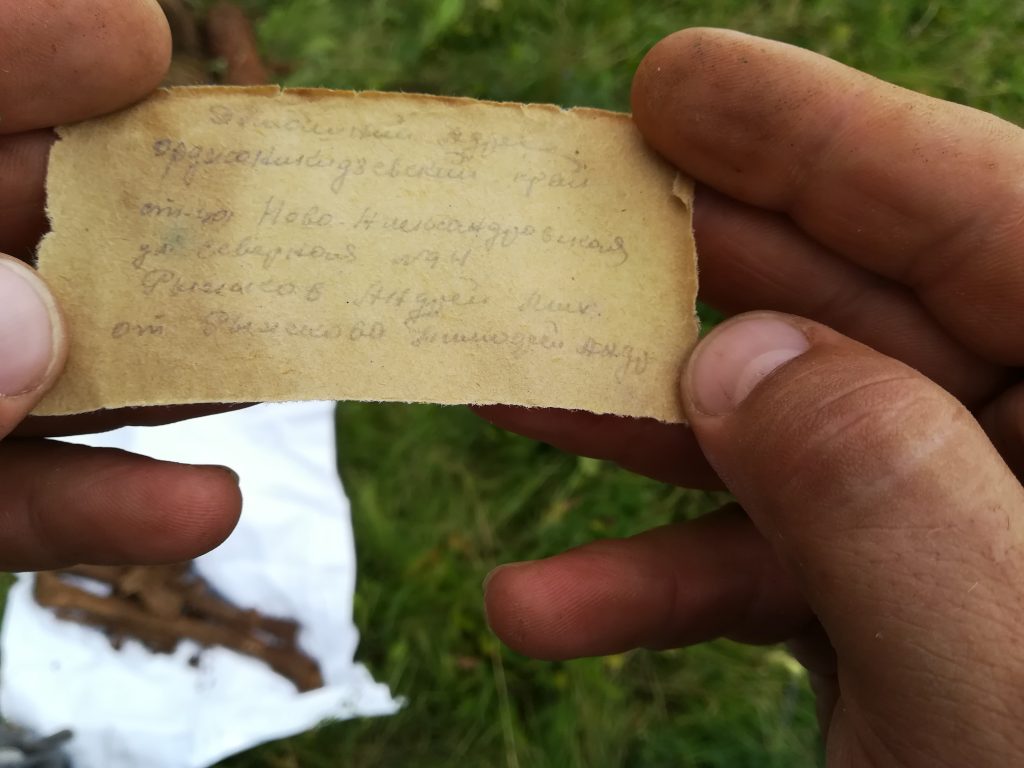 Домашний адрес
орджоникидзевский край
ст-ца Ново-Александровская
ул северная №94
Рыжков Андрей Мих.
от Рыжкова Андр